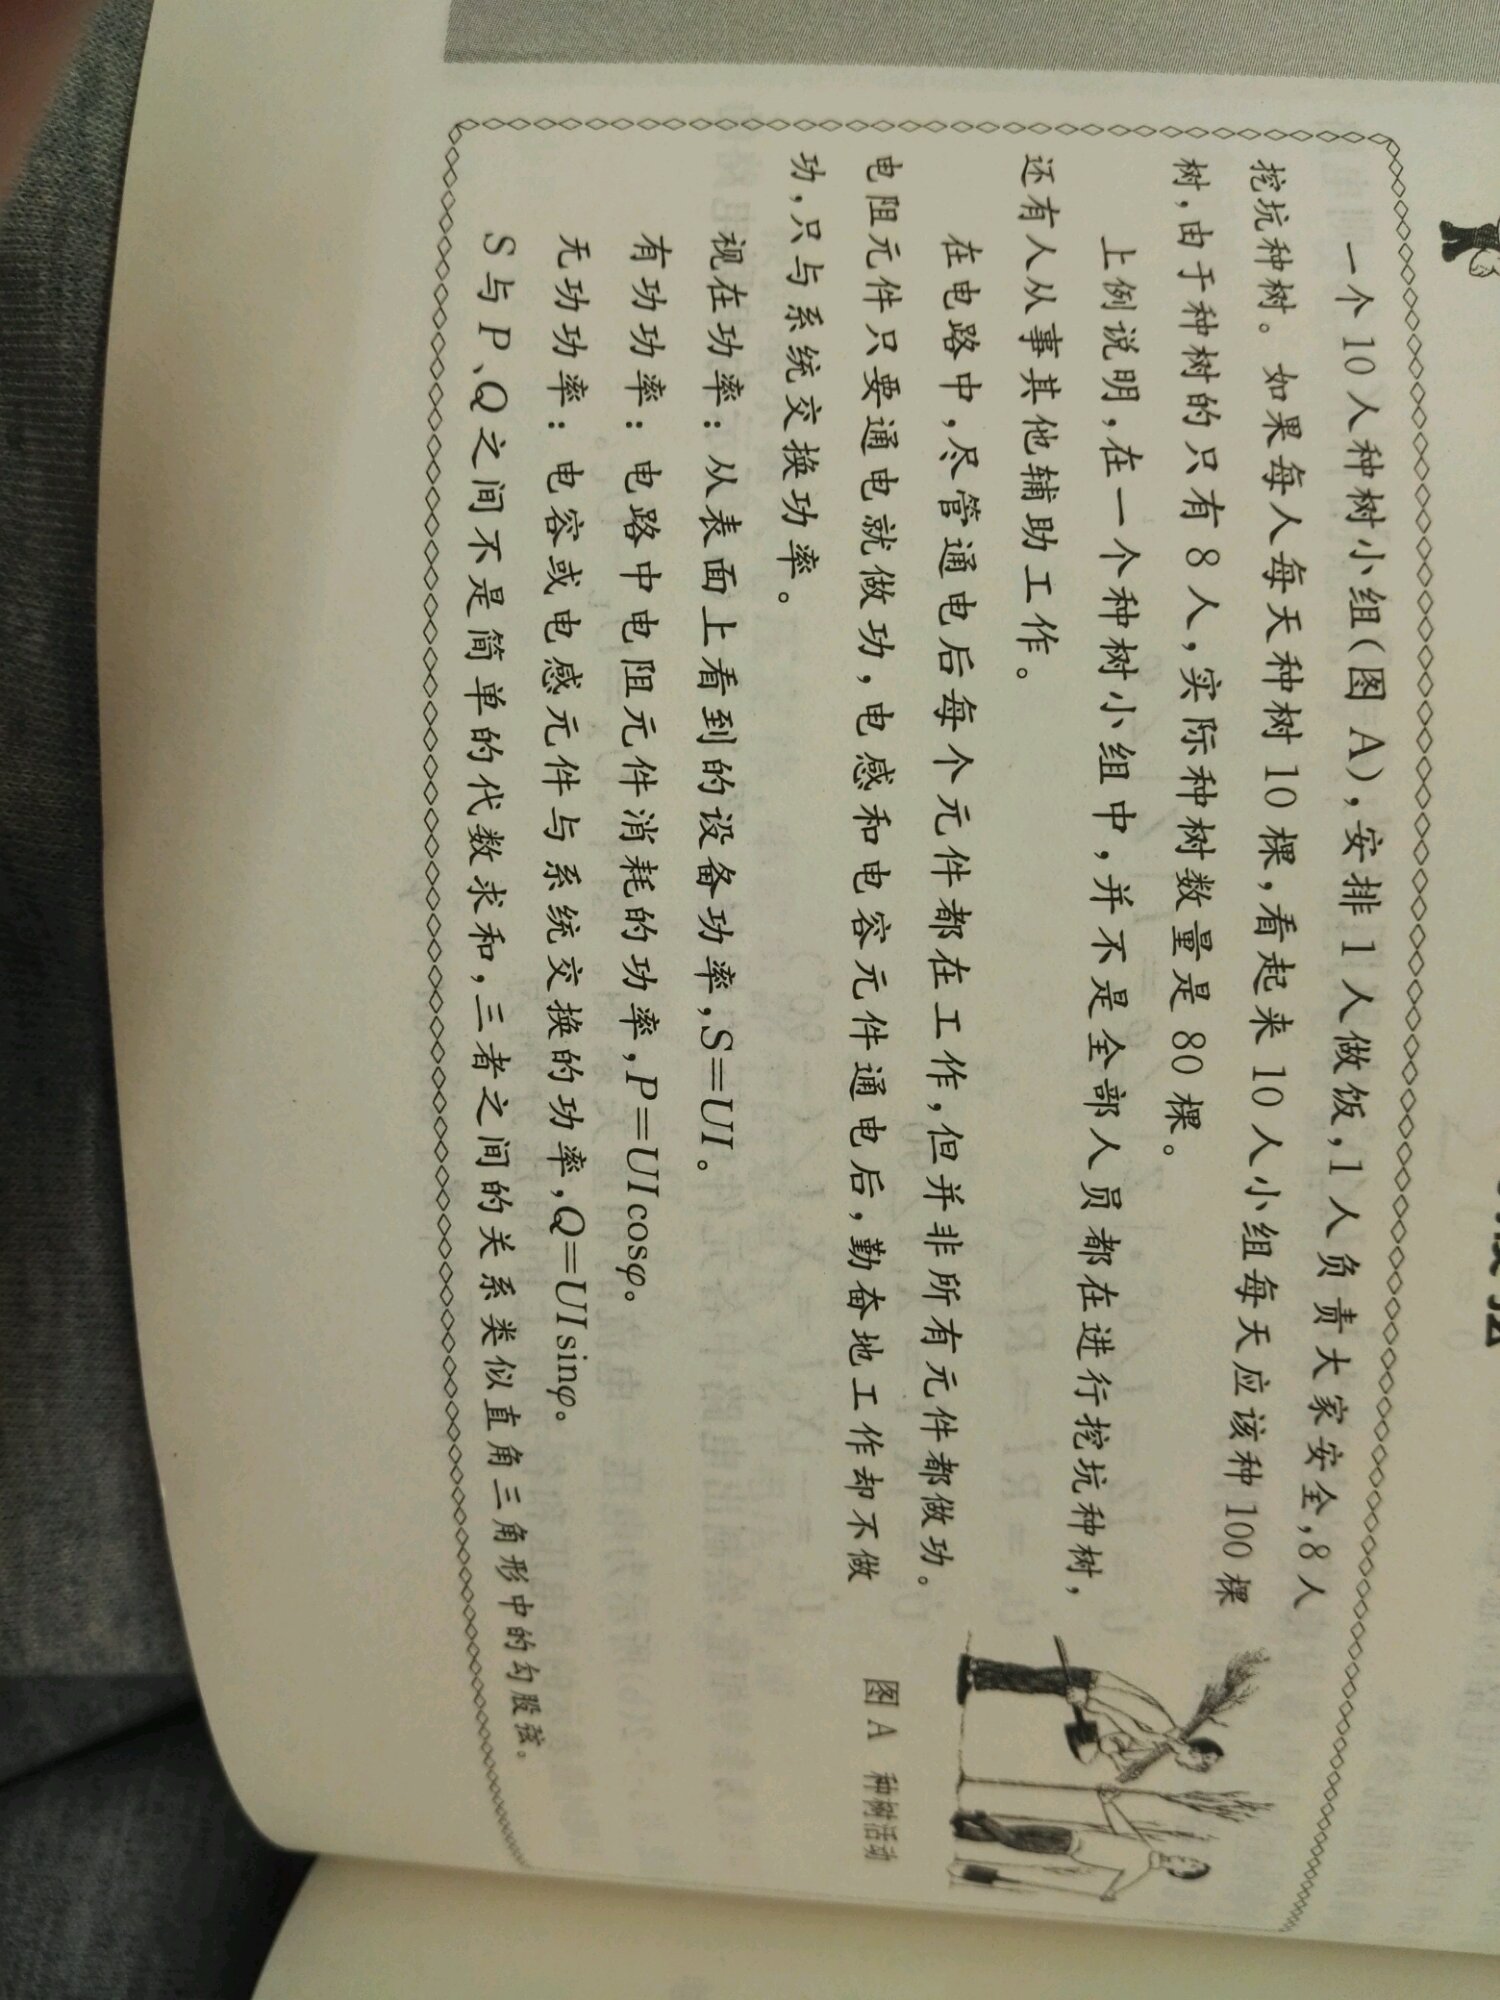 一个10人种树小组(图 A),安排1人做饭,1人负责大家安全,8人
挖坑种树。如果每人每天种树10棵,看起来10人小组每天应该种100棵
树,由于种树的只有8人,实际种树数量是80棵。
上例说明,在一个种树小组中,并不是全部人员都在进行挖坑种树,
还有人从事其他辅助工作。
在电路中,尽管通电后每个元件都在工作,但并非所有元件都做功。
电阻元件只要通电就做功,电感和电容元件通电后,勤奋地工作却不做
功,只与系统交换功率。
视在功率:从表面上看到的设备功率,S=UI。
有功功率:电路中电阻元件消耗的功率,P=UIcosφ。
无功功率:电容或电感元件与系统交换的功率,Q=UIsinφ。
S与P、Q之间不是简单的代数求和,三者之间的关系类似直角三角形中的勾股弦。
图A 种树活动